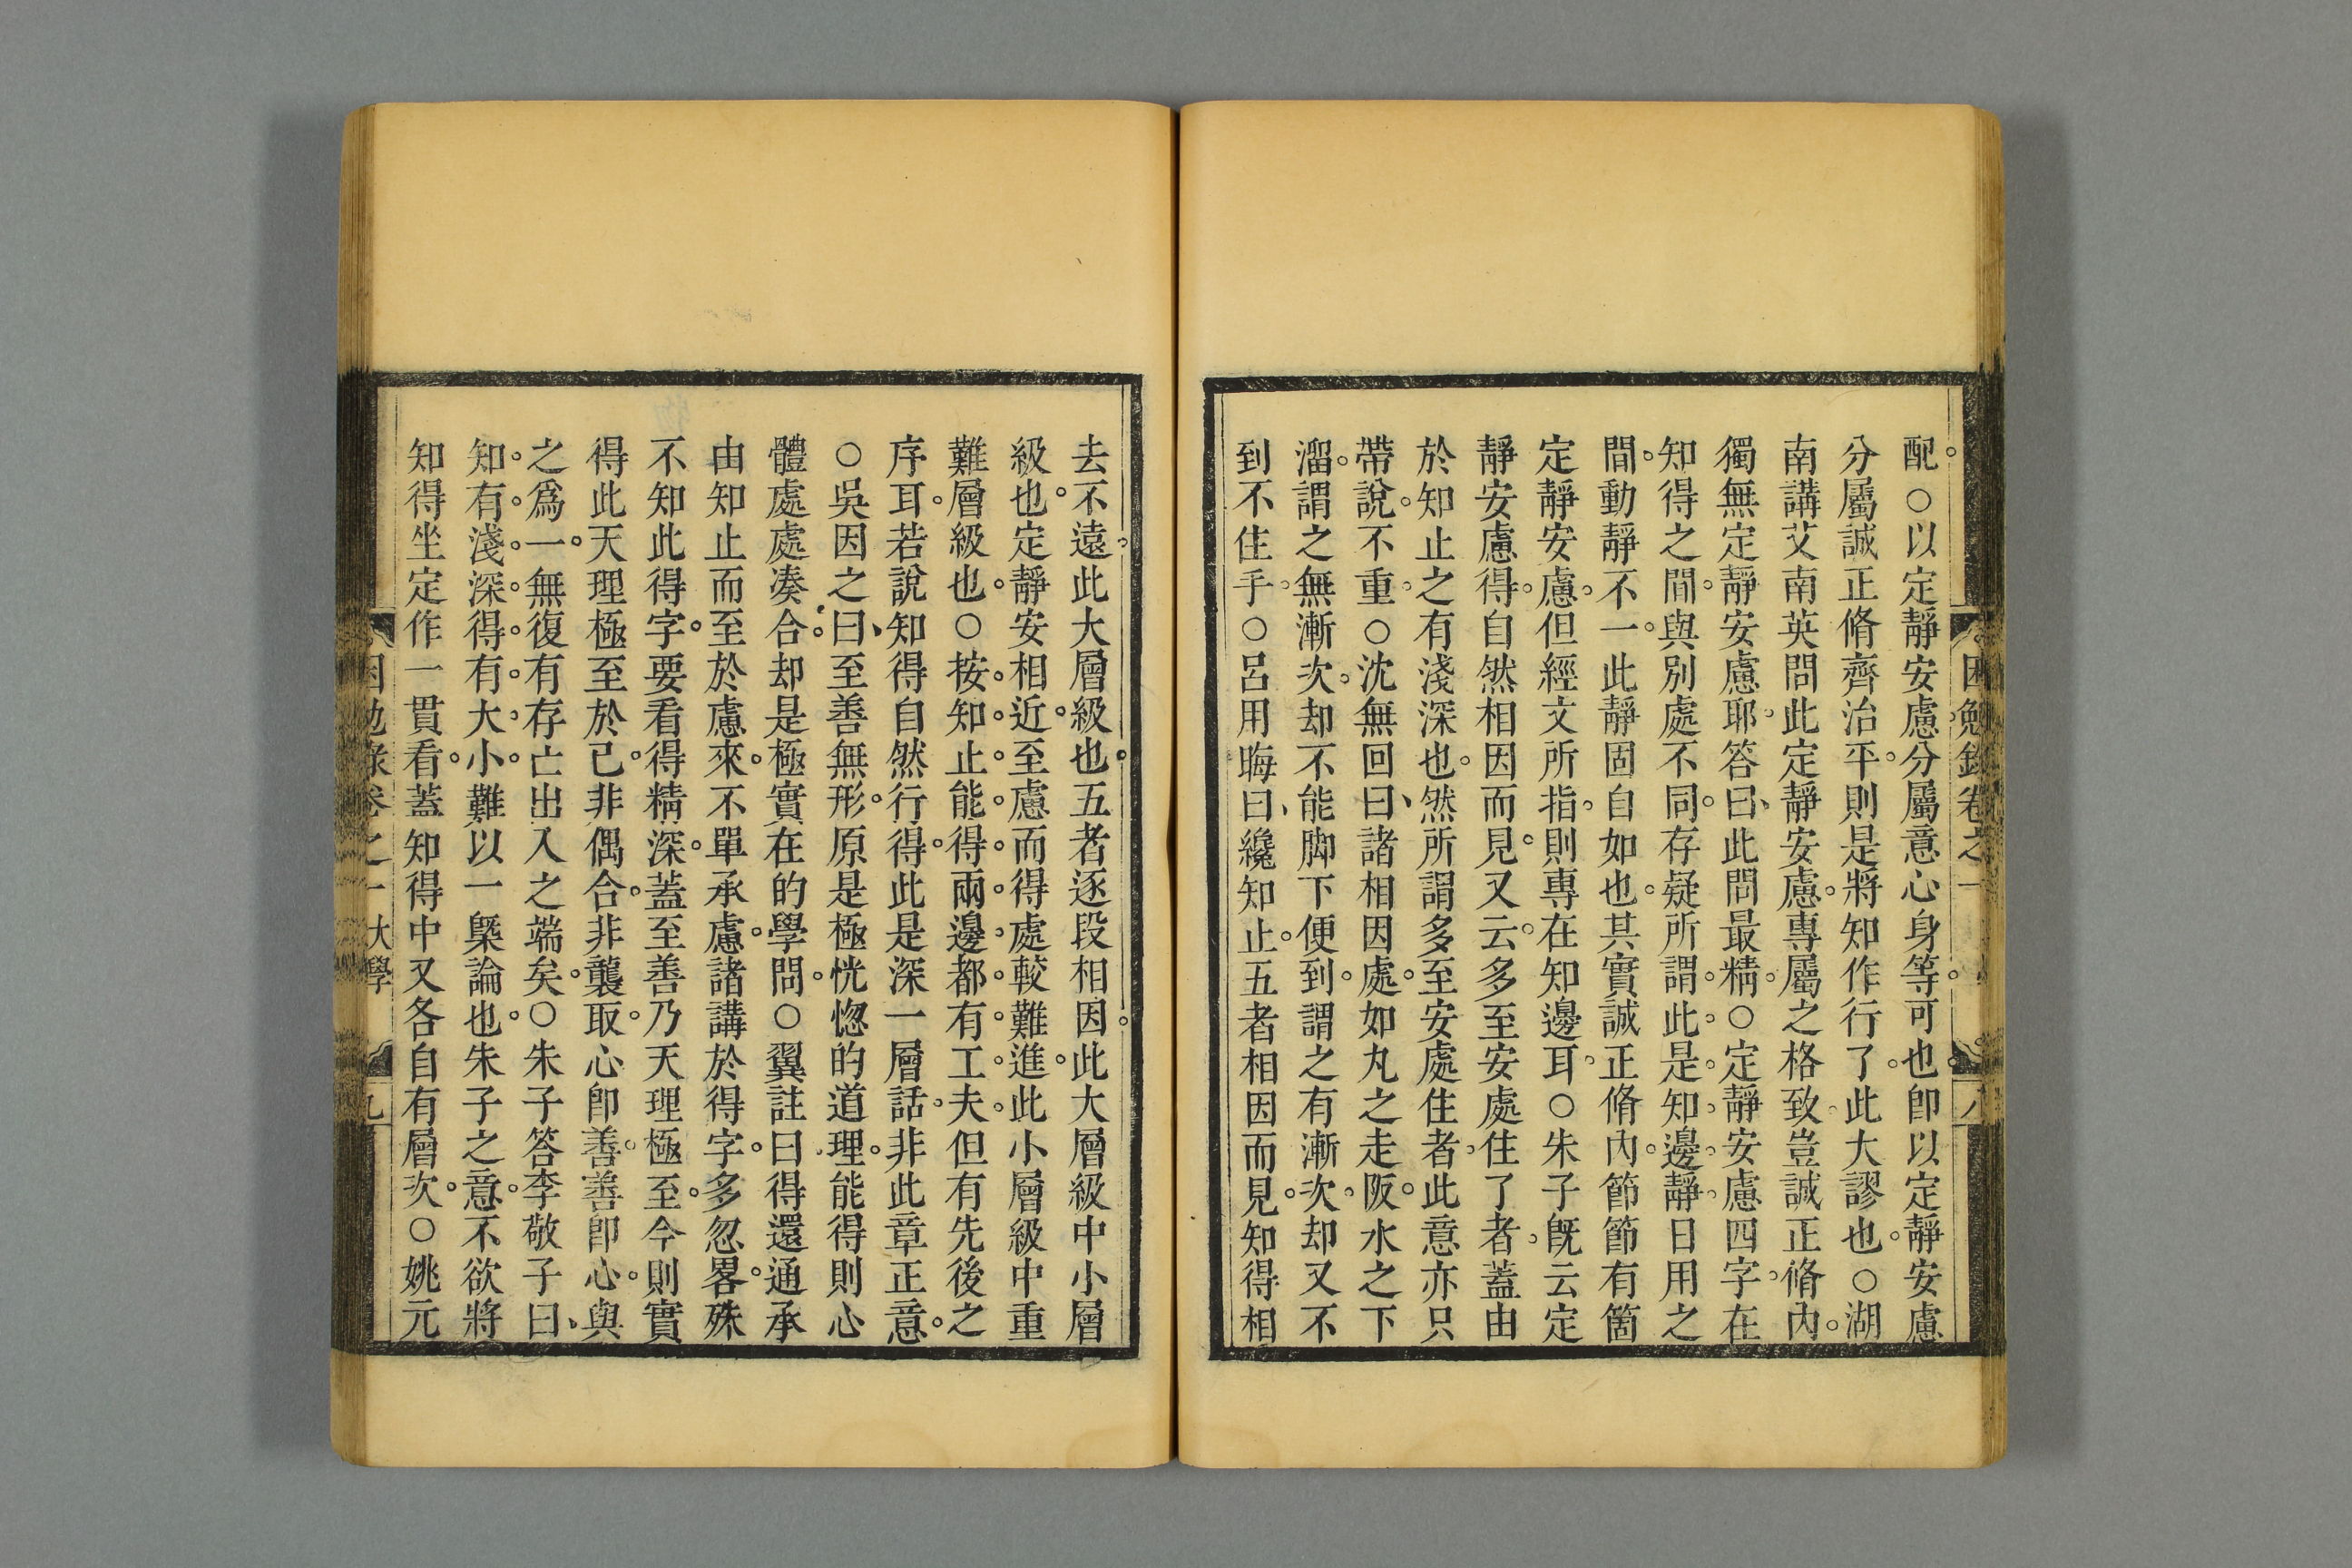 困勉錄卷之一
八
配○以定靜安慮分屬意心身等可也卽以定靜安慮
分屬誠正脩齊治平則是將知作行了此大謬也○湖
南講艾南英問此定靜安慮專屬之格致豈誠正脩內
獨無定靜安慮耶答曰此問最精○定靜安慮四字在
知得之間與別處不同存疑所謂此是知邊靜日用之
間動靜不一此靜固自如也其實誠正脩內節節有箇
定靜安慮但經文所指則專在知邊耳○朱子旣云定
靜安慮得自然相因而見又云多至安處住了者蓋由
於知止之有淺深也然所謂多至安處住者此意亦只
帶說不重○沈無回曰諸相因處如丸之走阪水之下
溜謂之無漸次却不能脚下便到謂之有漸次却又不
到不住手○呂用晦曰纔知止五者相因而見知得相
去不遠此大層級也五者逐段相因此大層級中小層
級也定靜安相近至慮而得處較難進此小層級中重
難層級也○按知止能得兩邊都有工夫但有先後之
序耳若說知得自然行得此是深一層話非此章正意
○吳因之曰至善無形原是極恍惚的道理能得則心
體處處湊合却是極實在的學問○翼註曰得還通承
由知止而至於慮來不單承慮諸講於得字多忽畧殊
不知此得字要看得精深蓋至善乃天理極至今則實
得此天理極至於己非偶合非襲取心卽善善卽心與
之爲一無復有存亡出入之端矣○朱子答李敬子曰
知有淺深得有大小難以一槩論也朱子之意不欲將
知得坐定作一貫看蓋知得中又各自有層次○姚元
困勉錄卷之一 大學
九